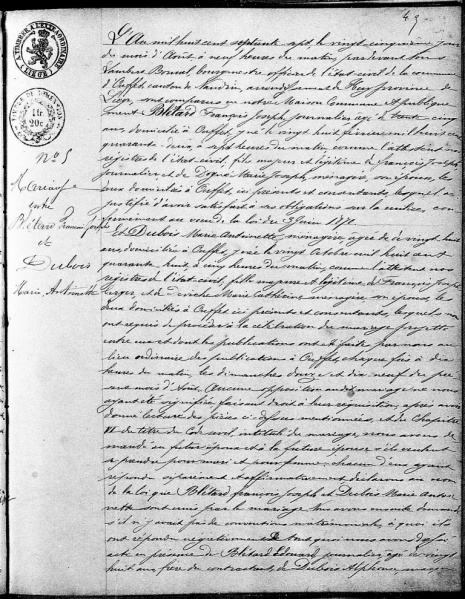 43
L'An mil huit cent septante sept, le vingt cinquième jour
du mois d'Août à neuf heures du matin, pardevant Nous
Lambert Bonval, bourgmestre officier de l'état civil de la commune
d'Ouffet, canton de Nandrin, arrondissement de Huy, province de
Liège, sont comparus en notre Maison Commune et publique
ment Blétard François Joseph, journalier, agé de trente cinq
ans, domicilié à Ouffet, y né le vingt huit février mil huit cent
quarante deux, à sept heures du matin, comme l'atteste nos
registres de l'état civil, fils majeur et légitime de François Joseph
journalier et de Marie Joseph, ménagère, son épouse, les
deux domiciliés à Ouffet, ici présents et consentants, lequel a
justifié d'avoir satisfait à ses obligations sur la milice, con
formément au vœu de la loi du 3 Juin 1870.
Et Dubois Marie Antoinette, ménagère, agée de vingt huit
ans, domiciliée à Ouffet, y née le vingt Octobre mil huit cent
quarante huit, à cinq heures du matin, comme l'atteste nos
registres de l'état civil, fille majeure et légitime de François Joseph
et de Marie Catherine, ménagère, son épouse, les
deux domiciliés à Ouffet, ici présents et consentants, lesquels nous
ont requis de procéder à la célébration du mariage projeté
entre eux et dont les publications ont été faites par nous au
lieu ordinaire des publications à Ouffet, chaque fois à dix
heures du matin, les dimanches douze et dix neuf du pré
sent mois d'Août. Aucune opposition audit mariage ne nous
ayant été signifiée, faisant droit à leur réquisition, après avoir
donné lecture des pièces ci-dessus mentionnées, et du Chapitre
VI du titre du Code civil, intitulé du mariage, nous avons de
mandé au futur époux et à la future épouse s'ils veulent
se prendre pour mari et pour femme; chacun d'eux ayant
répondu séparément et affirmativement déclarons au nom
de la loi que Blétard François Joseph et Dubois Marie Antoi
nette sont unis par le mariage. Nous avons ensuite demandé
s'il n'y avait pas de conventions matrimoniales, à quoi ils
ont répondu négativement. De tout quoi nous avons dressé
acte en présence de Blétard Edouard, journalier, agé de vingt
huit ans, frère du contractant, de Dubois Alphonse,
No 5
Mariage
entre
Blétard François Joseph
et
Dubois
Marie Antoinette
1 fr
20 c